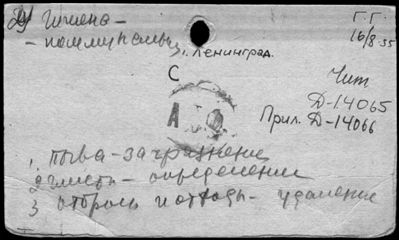 Гигиена - Г.Г.
- коммунальн. 16/8 35
г. Ленинград.
С Чит
Д-14065
А Прил. Д-14066
1, почва - загрязнение
2 - определение
3 отбросы и отходы - удаление